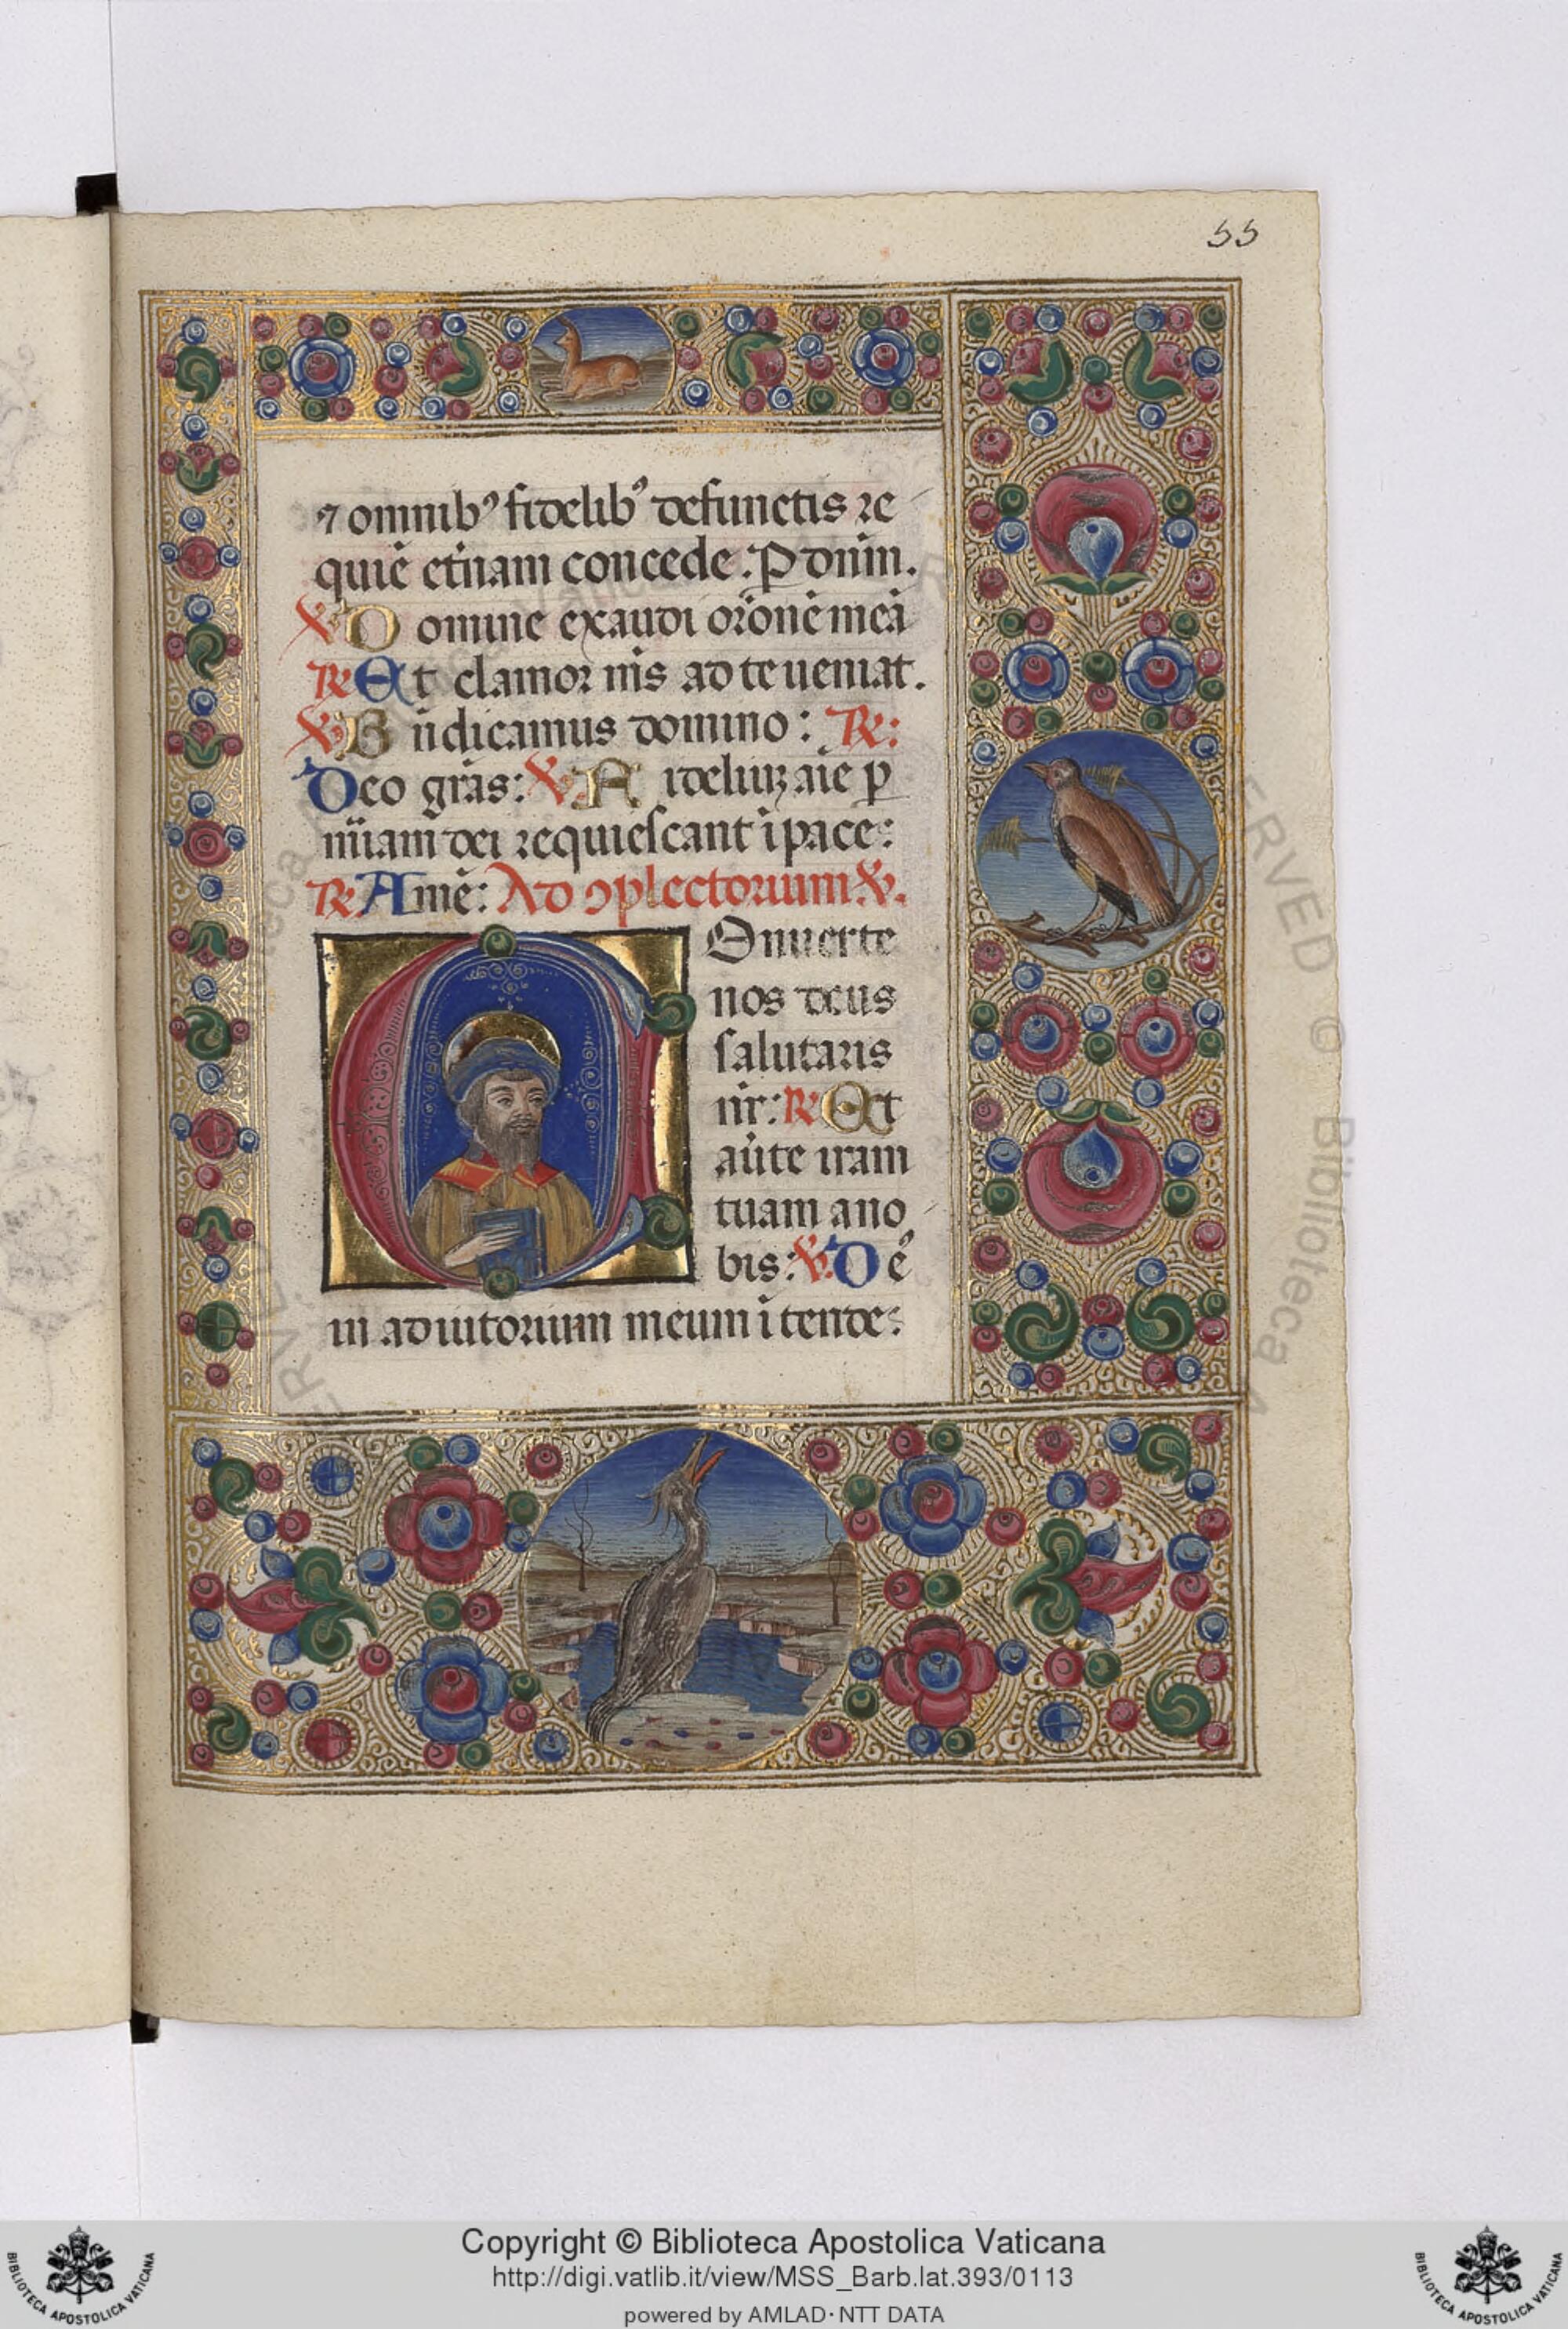 55
⁊ omnibꝰ fidelibꝰ defunctis re
quiē et̄nam concede. P dnm̄.
℣ Domine exaudi or̄onē meā
℟ Et clamor m̄s ad te ueniat.
℣ Bn̄dicamus domino: ℟:
Deo gr̄as: ℣. Fideliuꝫ aīe ꝑ
mīam dei requiescant ī pace:
℟ Amē: Ad ↄplectorium ℣.
Onuerte
nos deus
salutaris
nr̄: ℟ Et
aūte iram
tuam ano
bis: ℣. Deꝰ
in adiutorium meum ītende:
Copyright © Biblioteca Apostolica Vaticana
http://digi.vatlib.it/view/MSS_Barb.lat.393/0113
powered by AMLAD·NTT DATA
BIBLIOTECA APOSTOLICA VATICANA
BIBLIOTECA APOSTOLICA VATICANA